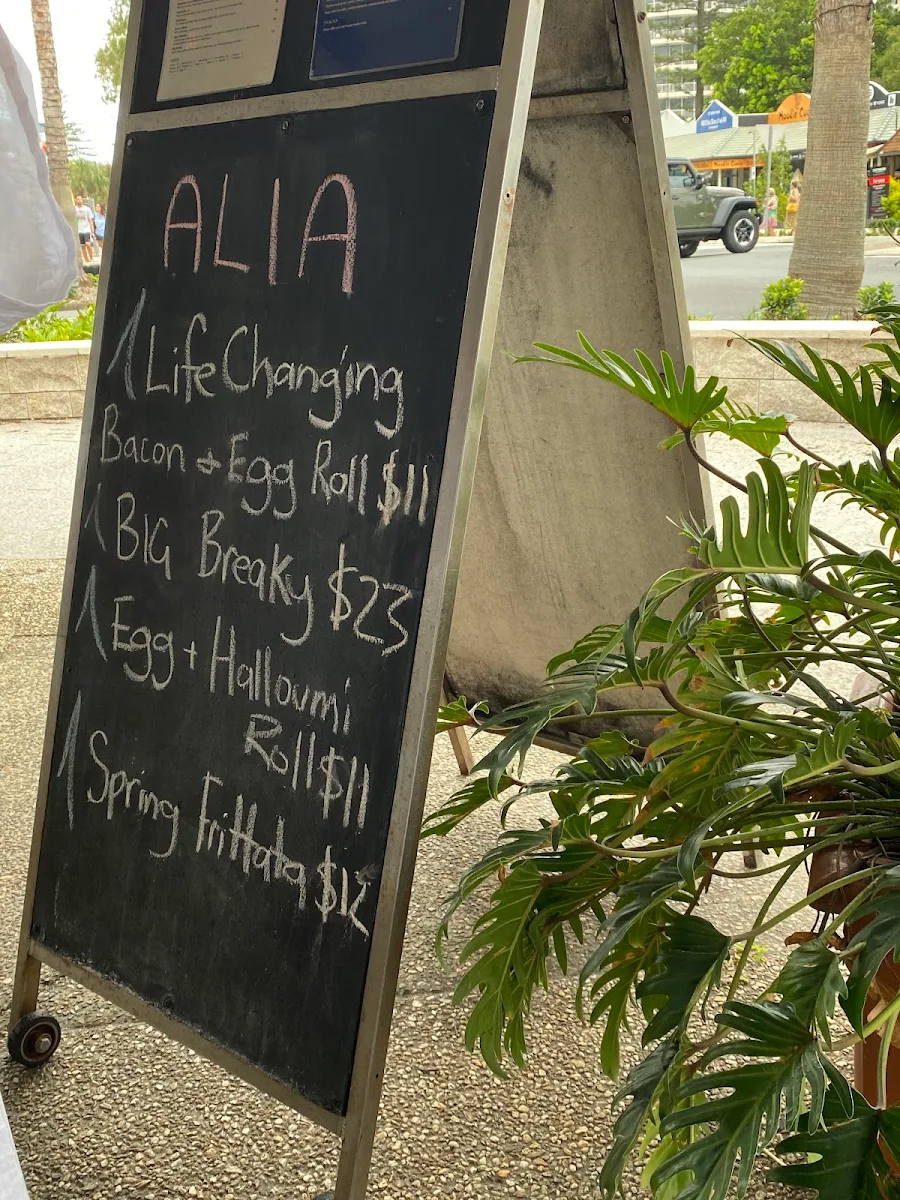 ALIA
Life Changing
Bacon + Egg Roll $11
BIG Breaky $23
Egg + Halloumi
Roll $11
Spring Frittata $12